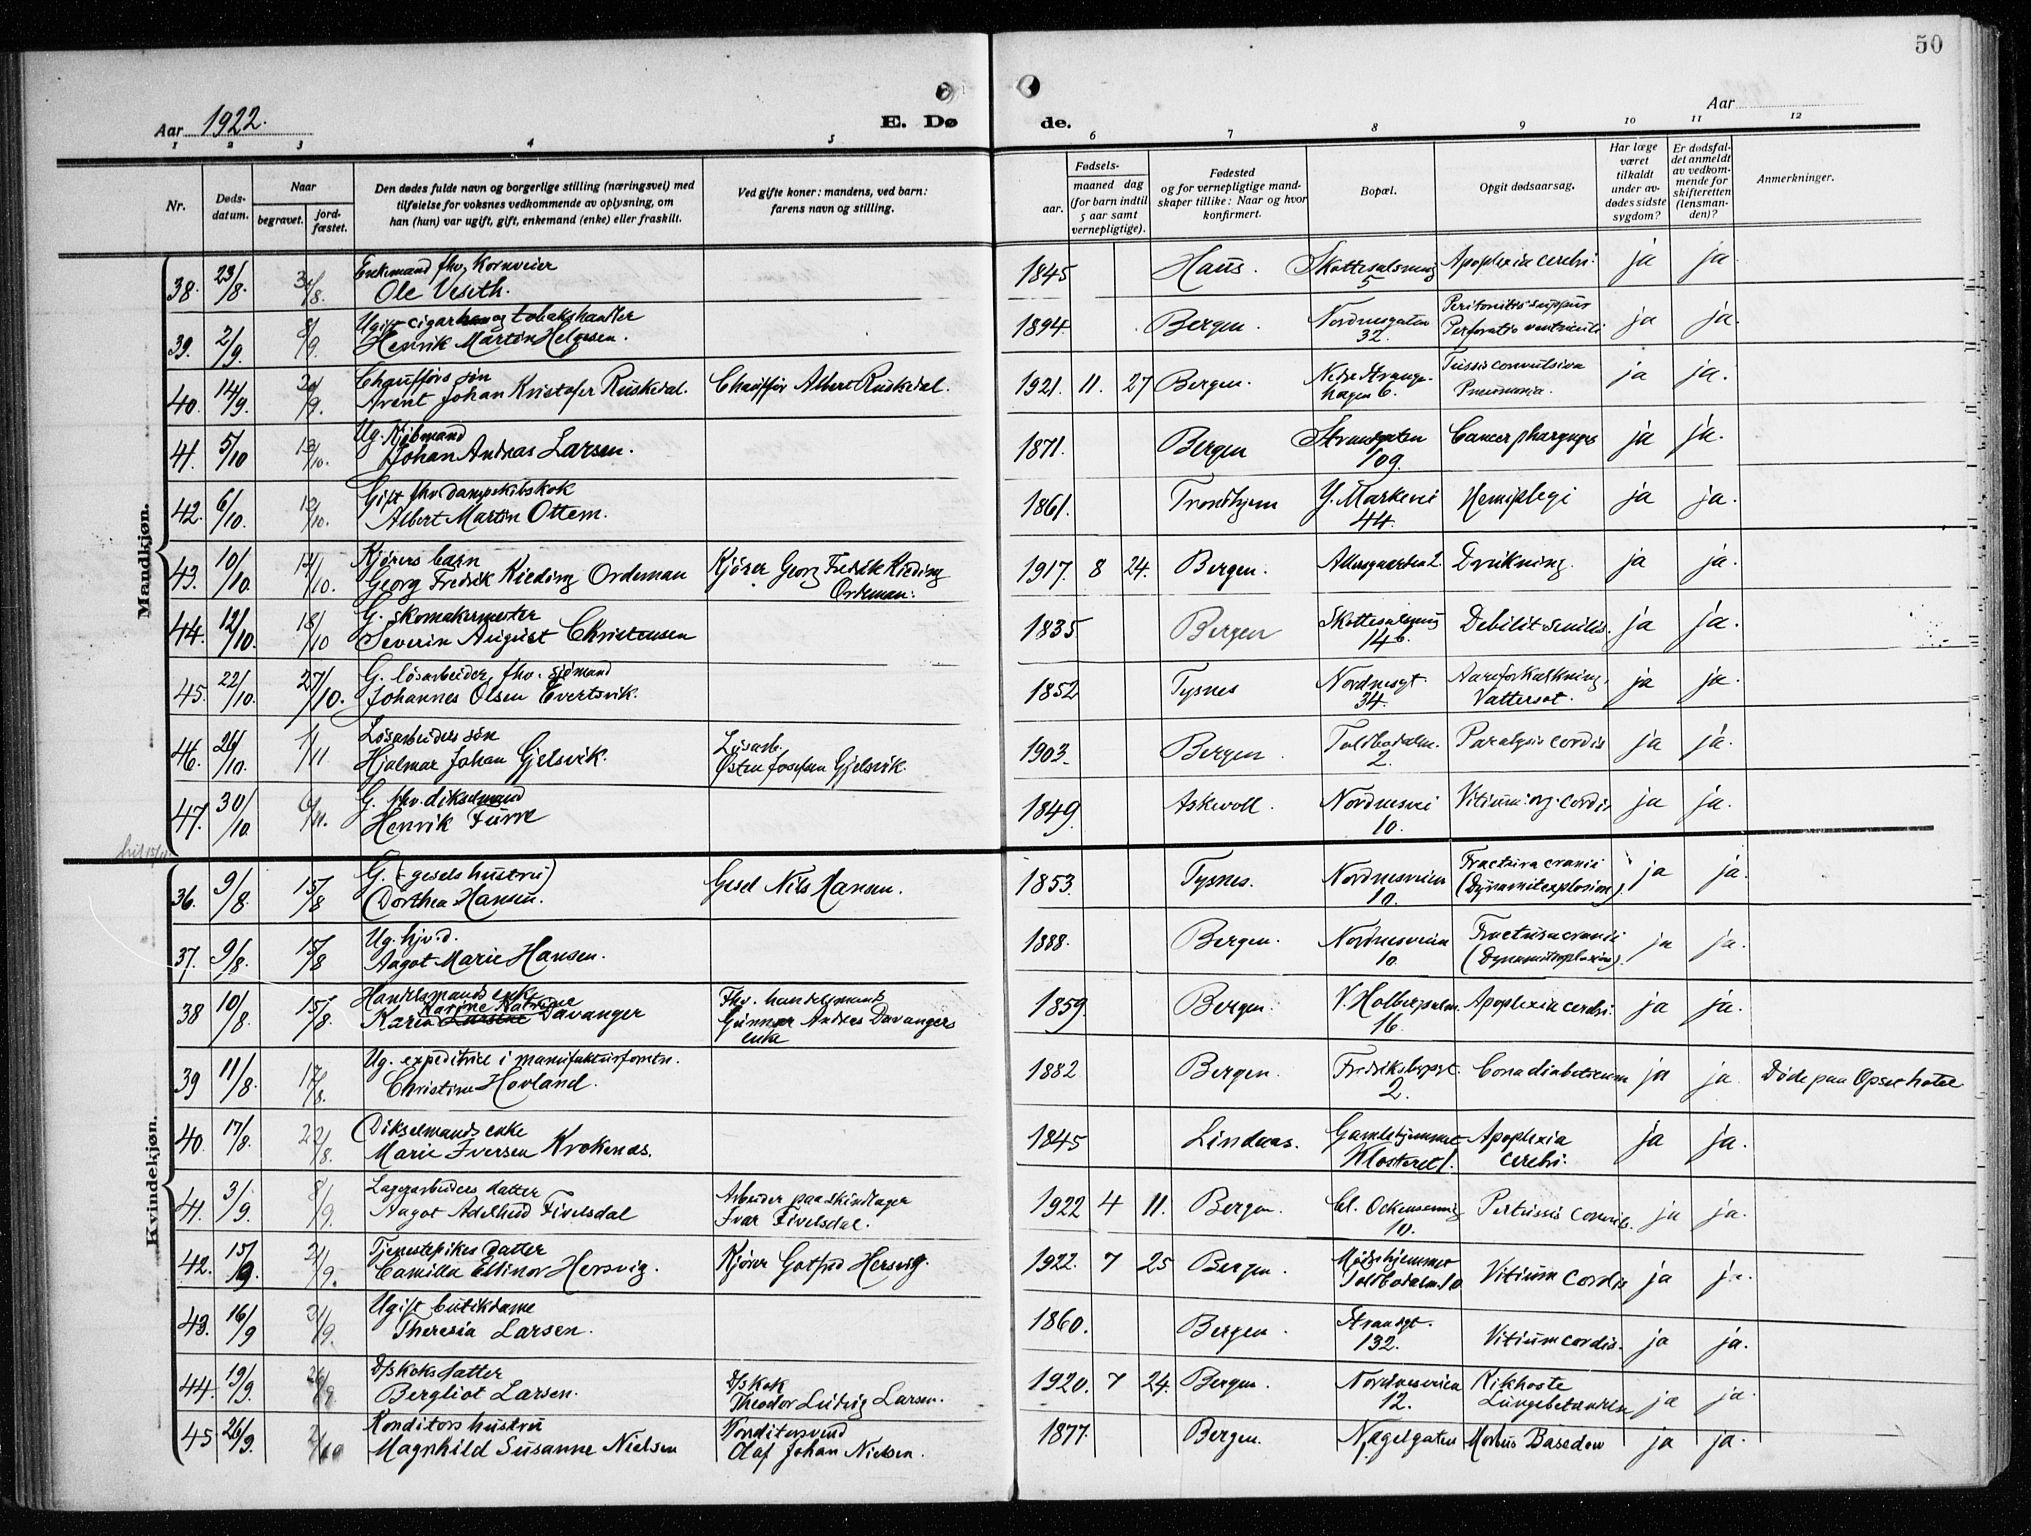 50
Aar 1922.
E. Dø
de.
Aar
1 2 3 4 5 6 7 8 9 10 11 12
Nr.
Døds-datum.
Naar
begravet.
jord-fæstet.
Den dødes fulde navn og borgerlige stilling (næringsvei) med
tilføielse for voksnes vedkommende av oplysning, om
han (hun) var ugift, gift, enkemand (enke) eller fraskilt.
Ved gifte koner: mandens, ved barn:
farens navn og stilling.
Fødsels-
aar.
maaned dag
(for barn indtil
5 aar samt
vernepligtige).
Fødested
og for vernepligtige mand-
skaper tillike: Naar og hvor
konfirmert.
Bopæl.
Opgit dødsaarsag.
Har læge
været
tilkaldt
under av-
dødes sidste
sygdom?
Er dødsfal-
det anmeldt
av vedkom-
mende for
skifteretten
(lensman-
den)?
Anmerkninger.
Mandkjøn.
38. 23/8. 31/8. Enkemand fhv. Kornveier
Ole Vesith. 1845 Haus. Skottesalmning 5 Apoplexia cerebri. ja ja.
39. 2/9. 8/9. Ugift cigar og tobakshandler
Henrik Martin Helgesen. 1894. Bergen. Nordnesgaten 32. Peritonitis suppur
Perforatio ventriculi ja ja.
40. 14/9. 20/9. Chaufførs søn
Arent Johan Kristofer Ruskedal. Chauffør Albert Ruskedal. 1921. 11. 27 Bergen. Nedre Strange-
hagen 6. Tussis convulsiva
Pneumonia. ja ja.
41. 5/10 13/10. Ug. Kjøbmand
Johan Andreas Larsen. 1871. Bergen Strandgaten 109. Cancer pharyngis ja ja.
42. 6/10. 12/10. Gift fhv dampskibskok
Albert Martin Ottem. 1861. Trondhjem Y. Markevei 44. Hemiplegi ja ja.
43. 10/10. 14/10. Kjørers barn
Georg Fredrik Kieding Ordeman Kjører Georg Fredrik Kieding
Ordeman. 1917. 8 24. Bergen. 2. Drukning. ja ja.
44. 12/10. 18/10 G. skomakermester
Severin August Christensen 1835 Bergen 14 b. Debilit. senilis. ja ja.
45. 22/10. 27/10. G. løsarbeider, fhv. sjømand
Johannes Olsen Evertsvik. 1852 Tysnes Nordnesgt. 34. Aareforkalkning.
Vattersot. ja ja.
46. 26/10. 1/11 Løsarbeiders søn
Hjalmar Johan Gjelsvik. Løsarb.
Østen Josefsen Gjelsvik. 1903. Bergen Toldbodalm. 2. Paralysis cordis ja ja.
47. 30/10. 6/11. G. fhv. dikselmand
Henrik Furre 1849. Askevoll. Nordnesvei 10. Vitium org. cordis ja ja.
Kvindekjøn.
36. 9/8. 15/8 G. (gesels hustru)
Dorthea Hansen. Gesel Nils Hansen. 1853. Tysnes. Nordnesveien 10. Fractura cranii
(Dynamitexplosion). ja ja.
37. 9/8. 15/8 Ug. hjv. d.
Aagot Marie Hansen. 1888. Bergen. Nordnesveien 10. Fractura cranii
(Dynamitexplosion). ja ja.
38 10/8. 15/8. Handelsmands enke
Karine Katrine
Karen Larsine Davanger Fhv. handelsmands
Gunnar Andreas Davangers
enke 1859. Bergen. V. Holbergsalm. 16. Apoplexia cerebri. ja ja
39 11/8. 17/8. Ug. expeditrice i manufakturforretn.
Christine Hovland. 1882 Bergen. Fredriksbergsgt. 2. Coma diabeticum ja ja. Døde paa hotel
40. 17/8. 22/8. Dikselmands enke
Marie Iversen Krokenas. 1845 Lindaas. Gamlehjemmet
Klosteret 1. Apoplexia
cerebri. ja ja.
41. 3/9. 8/9. Lagerarbeiders datter
Aagot Adelheid Fivelsdal Arbeider paa skindlager
Ivar Fivelsdal. 1922 4 11. Bergen. Cl. Ockensmug 10. Pertussis convuls. ja ja.
42. 15/9. 21/9. Tjenestepikes datter
Camilla Ellinor Hersvig. Kjører Gotfred Hersvig. 1922. 7 25 Bergen. Mødrehjemmet
Toldbodalm. 10 Vitium cordis ja ja.
43. 16/9 21/9. Ugift butikdame
Theresia Larsen. 1860. Bergen. Strandgt. 132. Vitium cordis. ja ja.
44. 19/9. 26/9. D/S Koks datter
Bergliot Larsen. D/S kok
Theodor Ludvig Larsen. 1920. 7 24. Bergen. Nordnesveien 12. Kikhoste
Lungebetændelse ja ja.
45 26/9. 2/10 Konditors hustru
Magnhild Susanne Nielsen Konditorsvend
Olaf Johan Nielsen. 1877. Bergen. Nøgelgaten 1 Morbus Basedow ja ja.